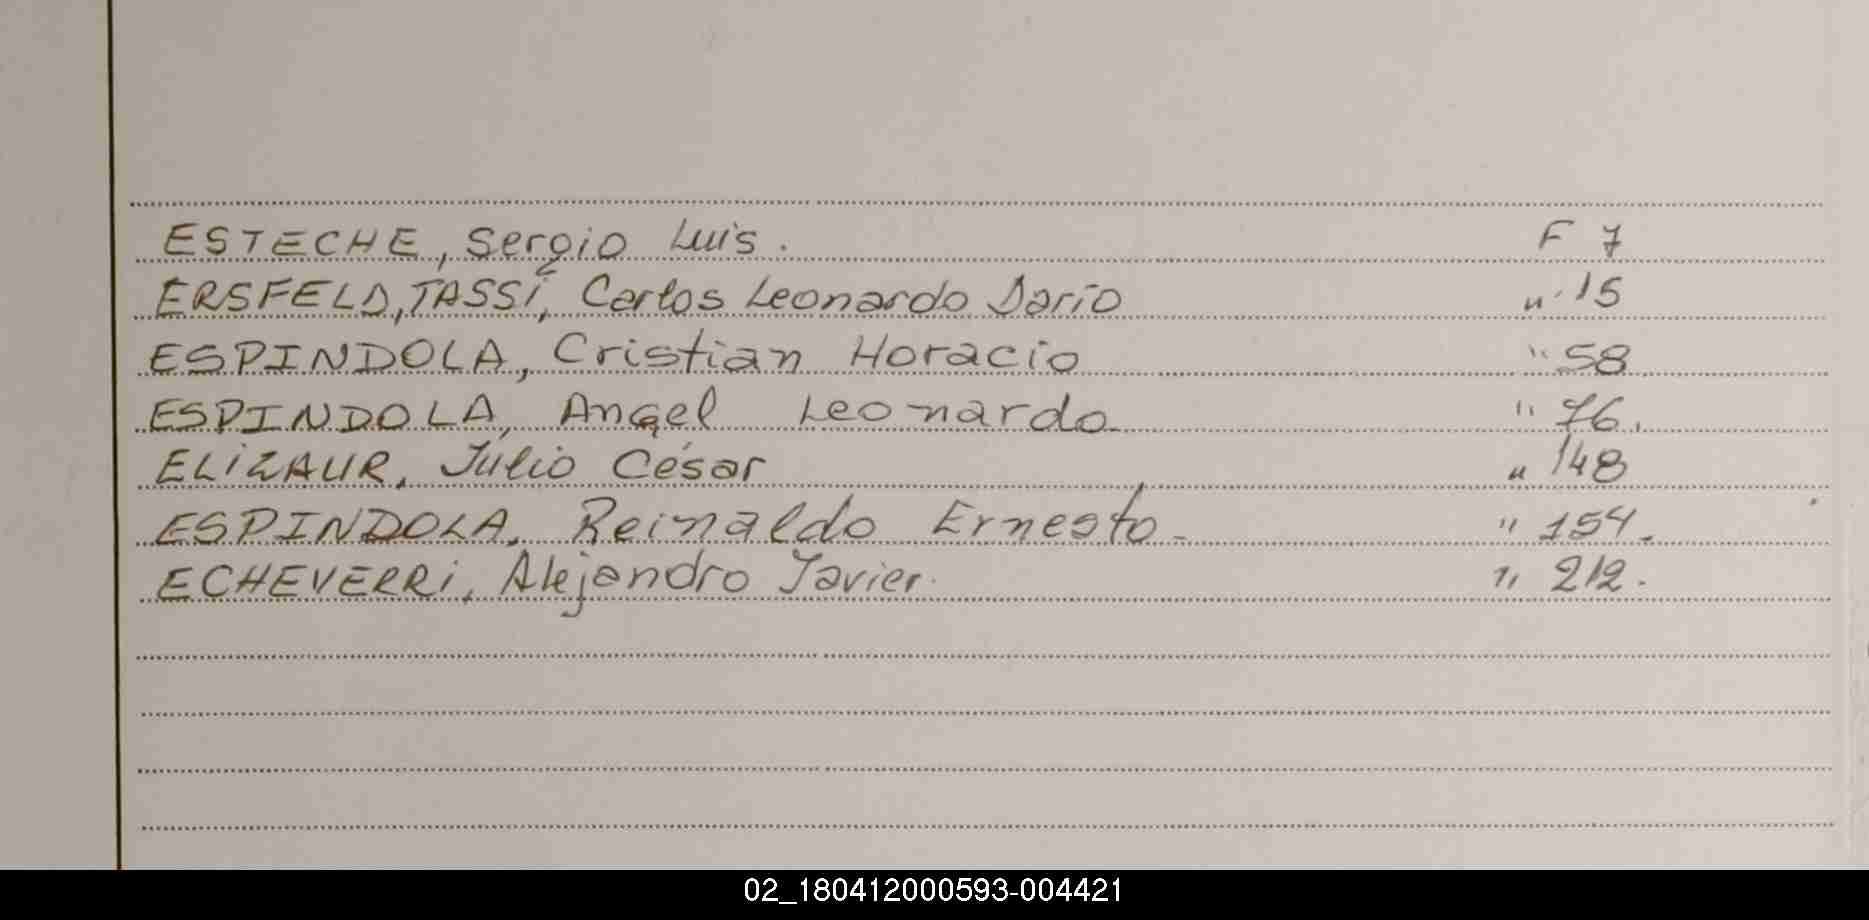 ESTECHE, Sergio Luis. F 7
ERSFELD, TASSi, Carlos Leonardo Darío " 15
ESPINDOLA, Cristian Horacio " 58
ESPINDOLA, Angel Leonardo " 76.
ELiZAUR, Julio César " 148
ESPINDOLA, Reinaldo Ernesto - " 154.
ECHEVERRi, Alejandro Javier. " 212.
02_180412000593-004421